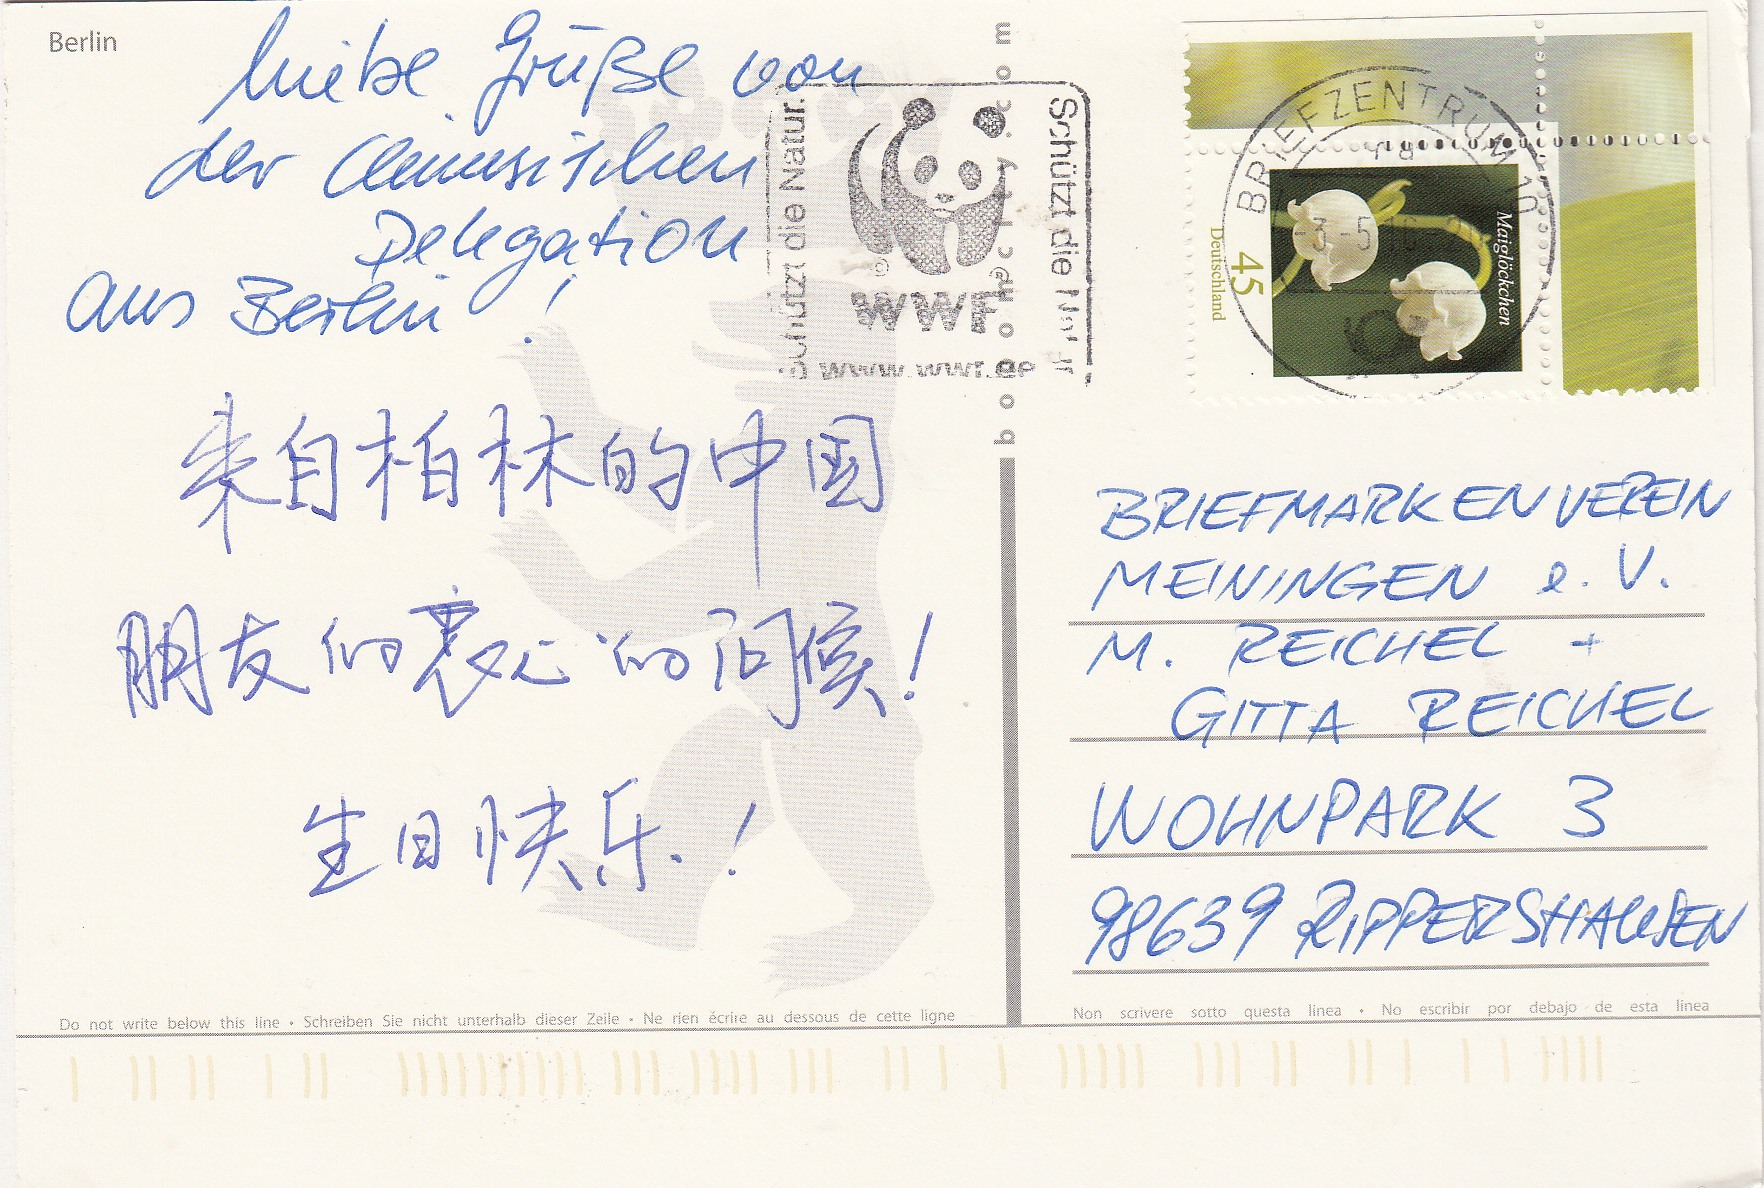 Berlin
Liebe Grüße von
der chinesischen
Delegation
aus Berlin!
来自柏林的中国
朋友们衷心的问候!
生日快乐!
Do not write below this line • Schreiben Sie nicht unterhalb dieser Zeile • Ne rien écrire au dessous de cette ligne
Schützt die Natur.
WWF
www.wwf.de
Schützt die Natur
boomcity.com
BRIEFZENTRUM 10
Maiglöckchen
45
Deutschland
BRIEFMARKENVEREIN
MEININGEN e. V.
M. REICHEL +
GITTA REICHEL
WOHNPARK 3
98639 RIPPERSHAUSEN
Non scrivere sotto questa linea • No escribir por debajo de esta linea